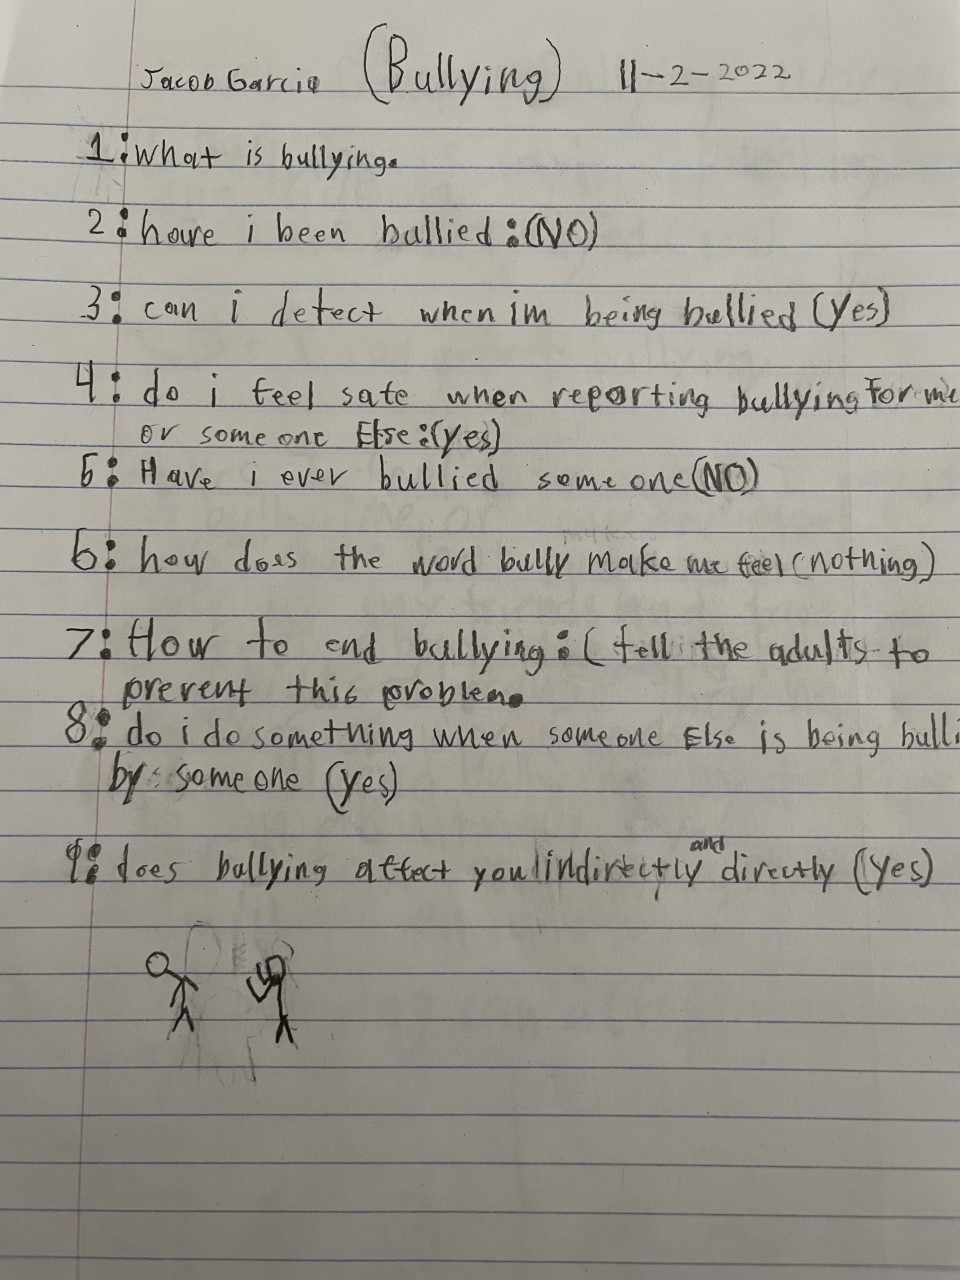 Jacob Garcia (Bullying) 11-2-2022
1: what is bullying.
2: have i been bullied: (NO)
3: can i detect when im being bullied (Yes)
4: do i feel safe when reporting bullying for me
or some one Else: (yes)
5: Have i ever bullied some one (NO)
6: how does the word bully make me feel (nothing)
7: How to end bullying: ( tell the adults to
prevent this problem.
8: do i do something when someone Else is being bulli
by: some one (yes)
9: does bullying affect you indirectly and directly (Yes)